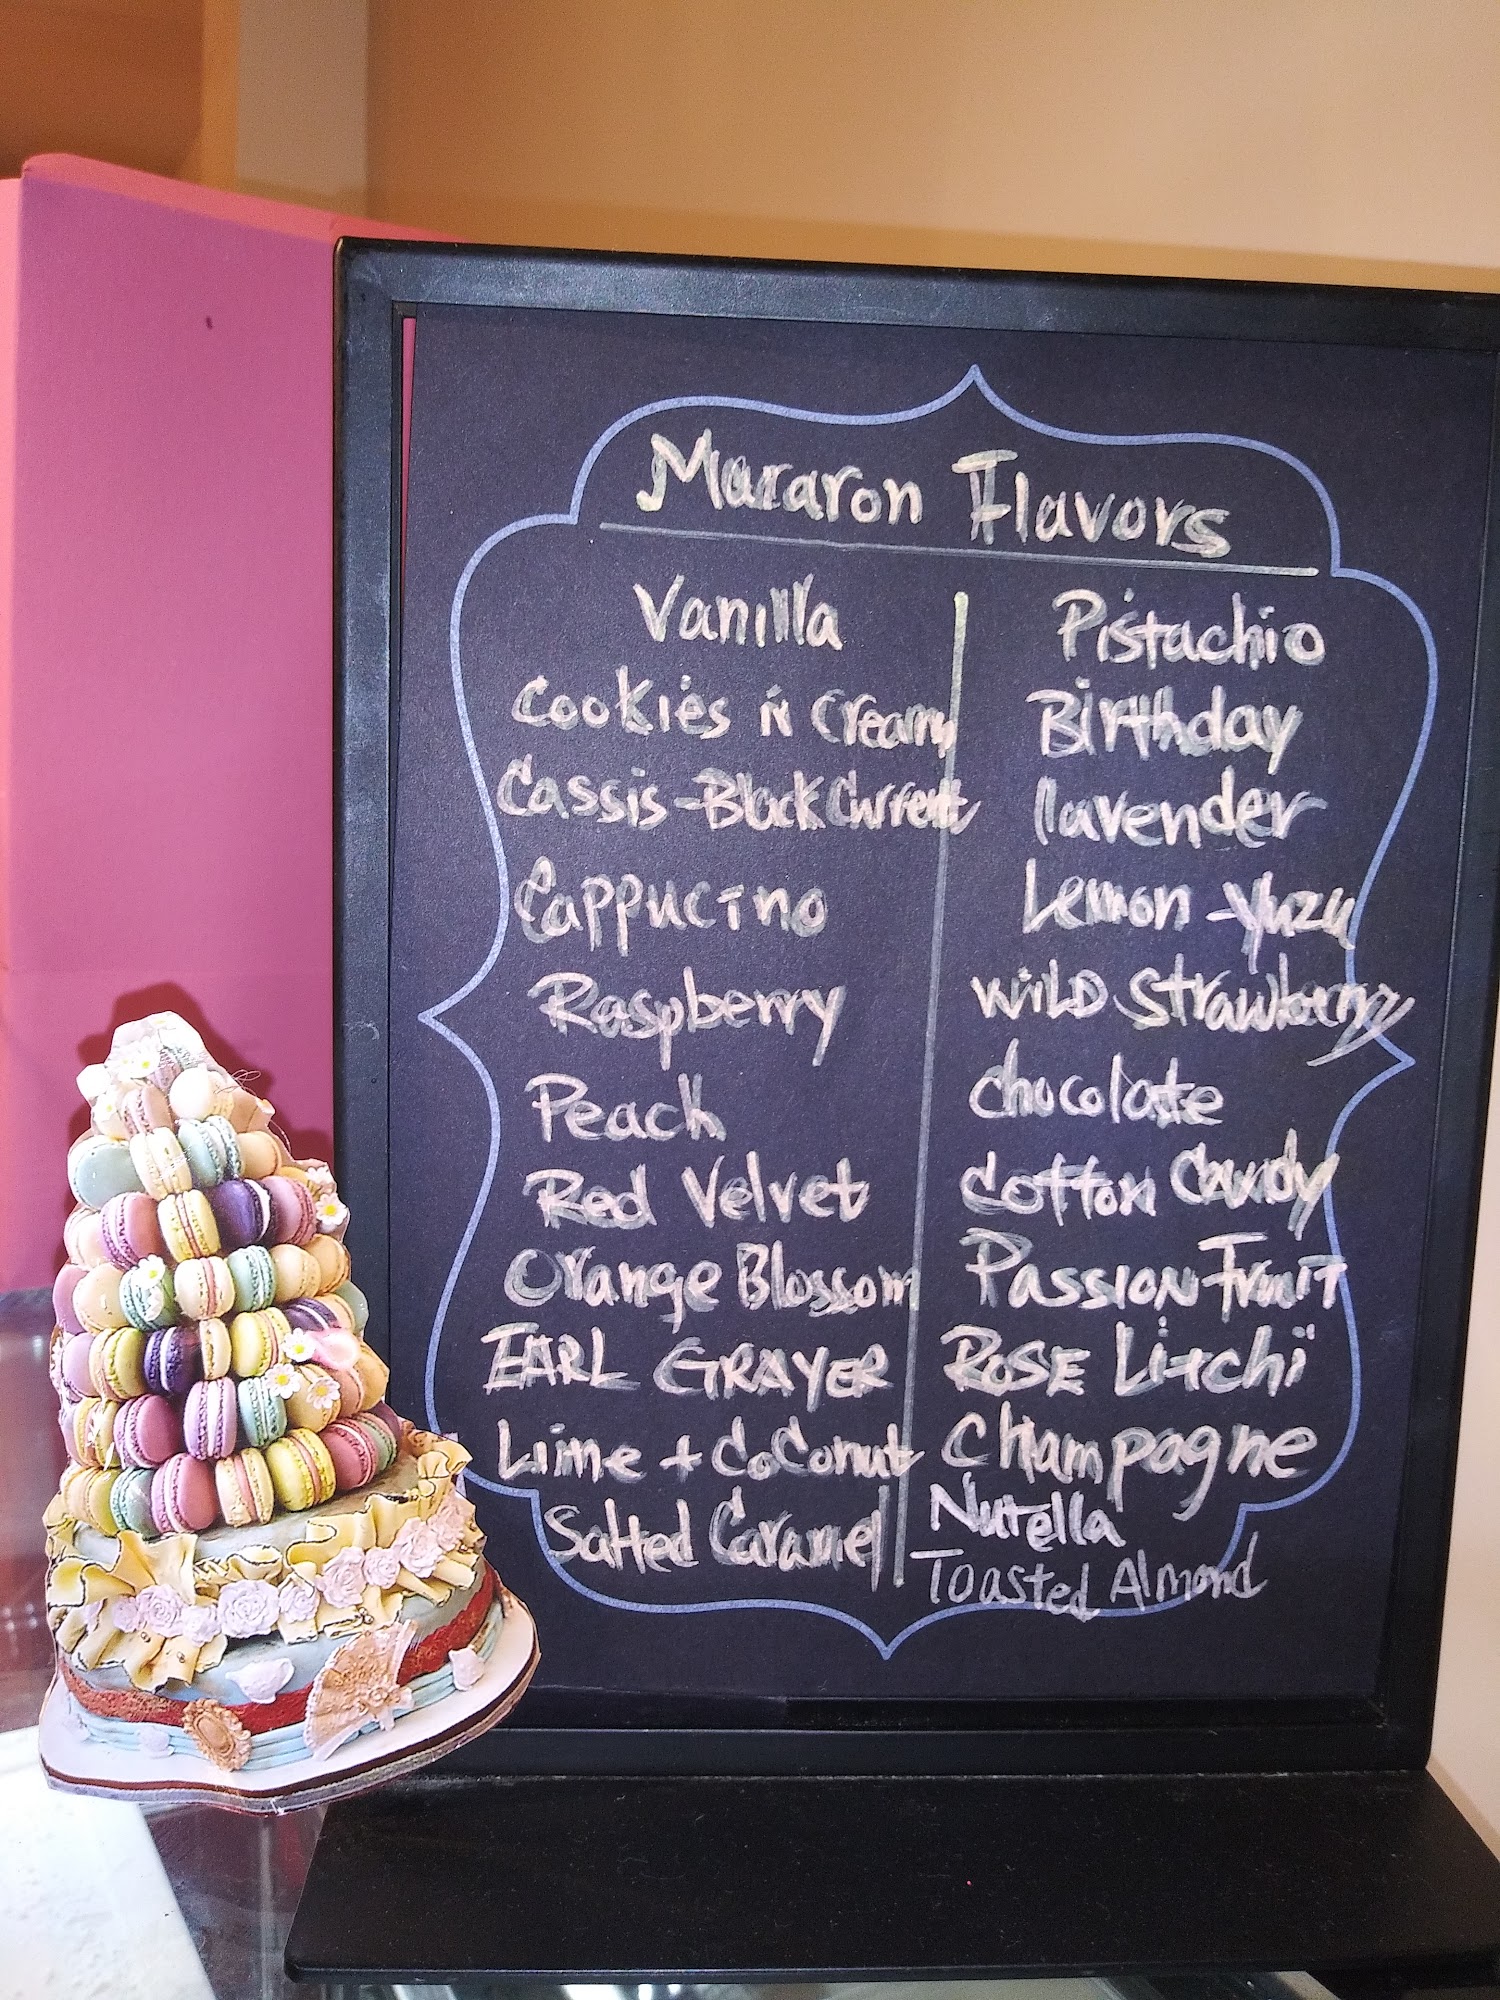 Macaron Flavors
Vanilla
Cookies n Cream
Cassis-Black Current
Cappucino
Raspberry
Peach
Red Velvet
Orange Blossom
EARL GRAYER
Lime + Coconut
Salted Caramel
Pistachio
Birthday
lavender
Lemon-Yuzu
WiLD Strawberry
Chocolate
Cotton Candy
PASSION FruiT
ROSE Litchi
Champagne
NuTella
Toasted Almond